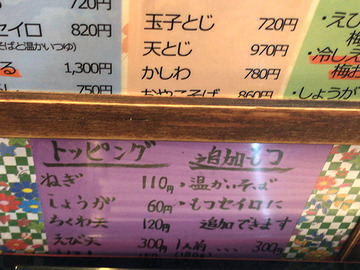 720円
セイロ 820円
そばと温かいつゆ)
る 1,300円
750円
玉子とじ 720円
天とじ 970円
かしわ 780円
おやこそば 860円
・えび
梅
・冷しえ
梅お
・しょうが
トッピング
ねぎ 110円
しょうが 60円
ちくわ天 120円
えび天 300円
追加もつ
・温かいそば
・もつセイロに
追加できます
1人前 ... 300円